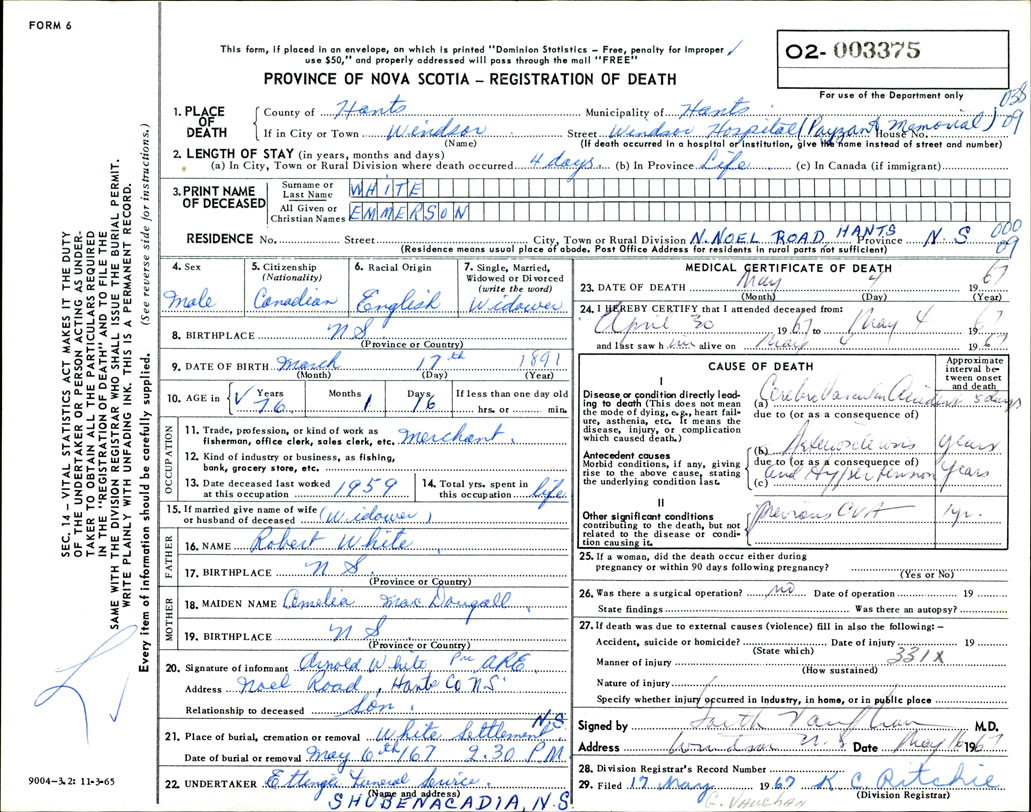 FORM 6
This form, if placed in an envelope, on which is printed "Dominion Statistics – Free, penalty for improper
use $50," and properly addressed will pass through the mail "FREE"
PROVINCE OF NOVA SCOTIA – REGISTRATION OF DEATH
02- 003375
For use of the Department only
1. PLACE OF DEATH
County of Hants Municipality of Hants 038
If in City or Town Windsor Street Windsor Hospital (Payzant Memorial) House No. 09
(Name) (If death occurred in a hospital or institution, give the name instead of street and number)
2. LENGTH OF STAY (in years, months and days)
(a) In City, Town or Rural Division where death occurred 4 days. (b) In Province Life (c) In Canada (if immigrant)
3. PRINT NAME OF DECEASED
Surname or Last Name WHITE
All Given or Christian Names EMMERSON
RESIDENCE No. Street City, Town or Rural Division N. NOEL ROAD HANTS Province N. S 000
(Residence means usual place of abode. Post Office Address for residents in rural parts not sufficient) 09
4. Sex Male
5. Citizenship (Nationality) Canadian
6. Racial Origin English
7. Single, Married, Widowed or Divorced (write the word) Widower
8. BIRTHPLACE N.S.
(Province or Country)
9. DATE OF BIRTH March 17th 1891
(Month) (Day) (Year)
10. AGE in Years 76 Months 1 Days 16 If less than one day old hrs. or min.
OCCUPATION
11. Trade, profession, or kind of work as fisherman, office clerk, sales clerk, etc. Merchant.
12. Kind of industry or business, as fishing, bank, grocery store, etc.
13. Date deceased last worked at this occupation 1959
14. Total yrs. spent in this occupation life
15. If married give name of wife or husband of deceased (Widower)
FATHER
16. NAME Robert White
17. BIRTHPLACE N S.
(Province or Country)
MOTHER
18. MAIDEN NAME Amelia MacDougall
19. BIRTHPLACE N S
(Province or Country)
20. Signature of informant Arnold White Per ARE
Address Noel Road, Hants Co N.S.
Relationship to deceased Son.
21. Place of burial, cremation or removal White Settlement N.S.
Date of burial or removal May 6th/67 2.30 P.M.
22. UNDERTAKER Ettinger Funeral Service.
(Name and address)
SHUBENACADIA, N.S
MEDICAL CERTIFICATE OF DEATH
23. DATE OF DEATH May 4 1967
(Month) (Day) (Year)
24. I HEREBY CERTIFY that I attended deceased from:
April 30 1967 to May 4 67
and last saw him alive on May 1967
CAUSE OF DEATH
Approximate interval between onset and death
I
Disease or condition directly leading to death (This does not mean the mode of dying, e.g., heart failure, asthenia, etc. It means the disease, injury, or complication which caused death.)
(a) Cerebro Vascular Accident 5 days
due to (or as a consequence of)
Antecedent causes
Morbid conditions, if any, giving rise to the above cause, stating the underlying condition last.
(b) years
due to (or as a consequence of)
(c) and Hypertension years
II
Other significant conditions
contributing to the death, but not related to the disease or condition causing it.
previous CVA 1 yr.
25. If a woman, did the death occur either during
pregnancy or within 90 days following pregnancy?
(Yes or No)
26. Was there a surgical operation? no Date of operation 19
State findings Was there an autopsy?
27. If death was due to external causes (violence) fill in also the following: –
Accident, suicide or homicide? Date of injury 19
(State which)
Manner of injury 331X
(How sustained)
Nature of injury
Specify whether injury occurred in industry, in home, or in public place
Signed by Vaughan M.D.
Address Windsor N.S Date May 16 1967
28. Division Registrar's Record Number
29. Filed 17 May 1967 K C Ritchie
(Division Registrar)
G. VAUGHAN
SEC. 14 – VITAL STATISTICS ACT MAKES IT THE DUTY
OF THE UNDERTAKER OR PERSON ACTING AS UNDER-
TAKER TO OBTAIN ALL THE PARTICULARS REQUIRED
IN THE "REGISTRATION OF DEATH" AND TO FILE THE
SAME WITH THE DIVISION REGISTRAR WHO SHALL ISSUE THE BURIAL PERMIT.
WRITE PLAINLY WITH UNFADING INK. THIS IS A PERMANENT RECORD.
Every item of information should be carefully supplied. (See reverse side for instructions.)
9004–3.2: 11-3-65